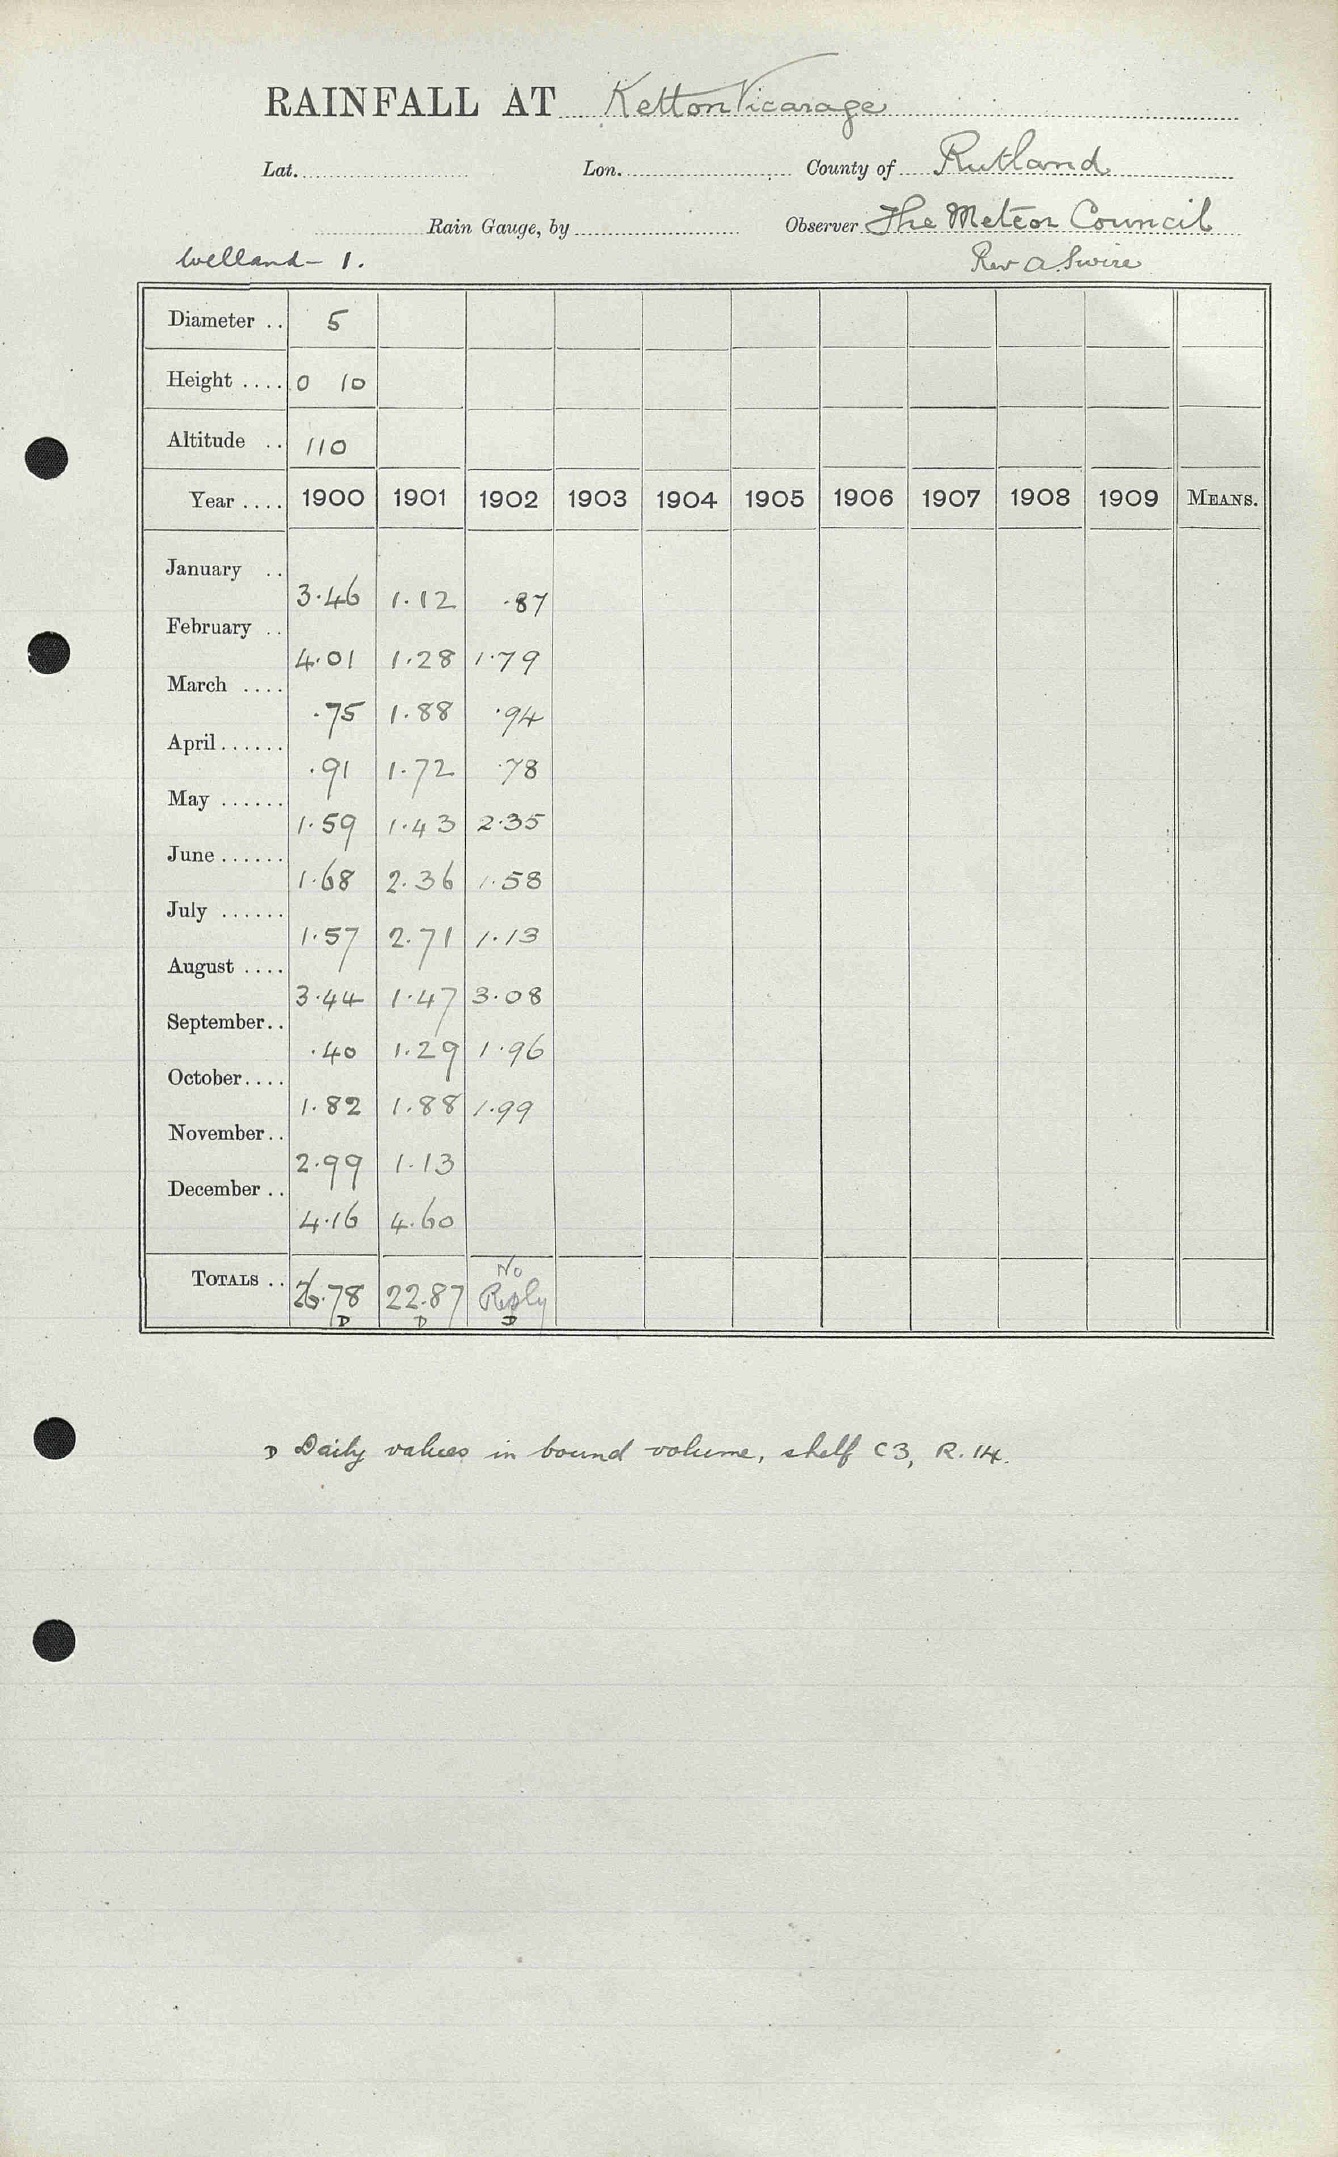 RAINFALL AT Ketton Vicarage
Lat. Lon. County of Rutland
Rain Gauge, by Observer The Meteor Council
Welland - 1. Rev A. Swire
Diameter .. 5
Height .... 0 10
Altitude .. 110
Year .... 1900 1901 1902 1903 1904 1905 1906 1907 1908 1909 MEANS.
January ..
3.46 1.12 .87
February ..
4.01 1.28 1.79
March ....
.75 1.88 .94
April......
.91 1.72 .78
May ......
1.59 1.43 2.35
June......
1.68 2.36 1.58
July ......
1.57 2.71 1.13
August ....
3.44 1.47 3.08
September..
.40 1.29 1.96
October....
1.82 1.88 1.99
November..
2.99 1.13
December ..
4.16 4.60
No
TOTALS .. 26.78 22.87 Reply
D D D
D Daily values in bound volume, shelf C3, R.14.